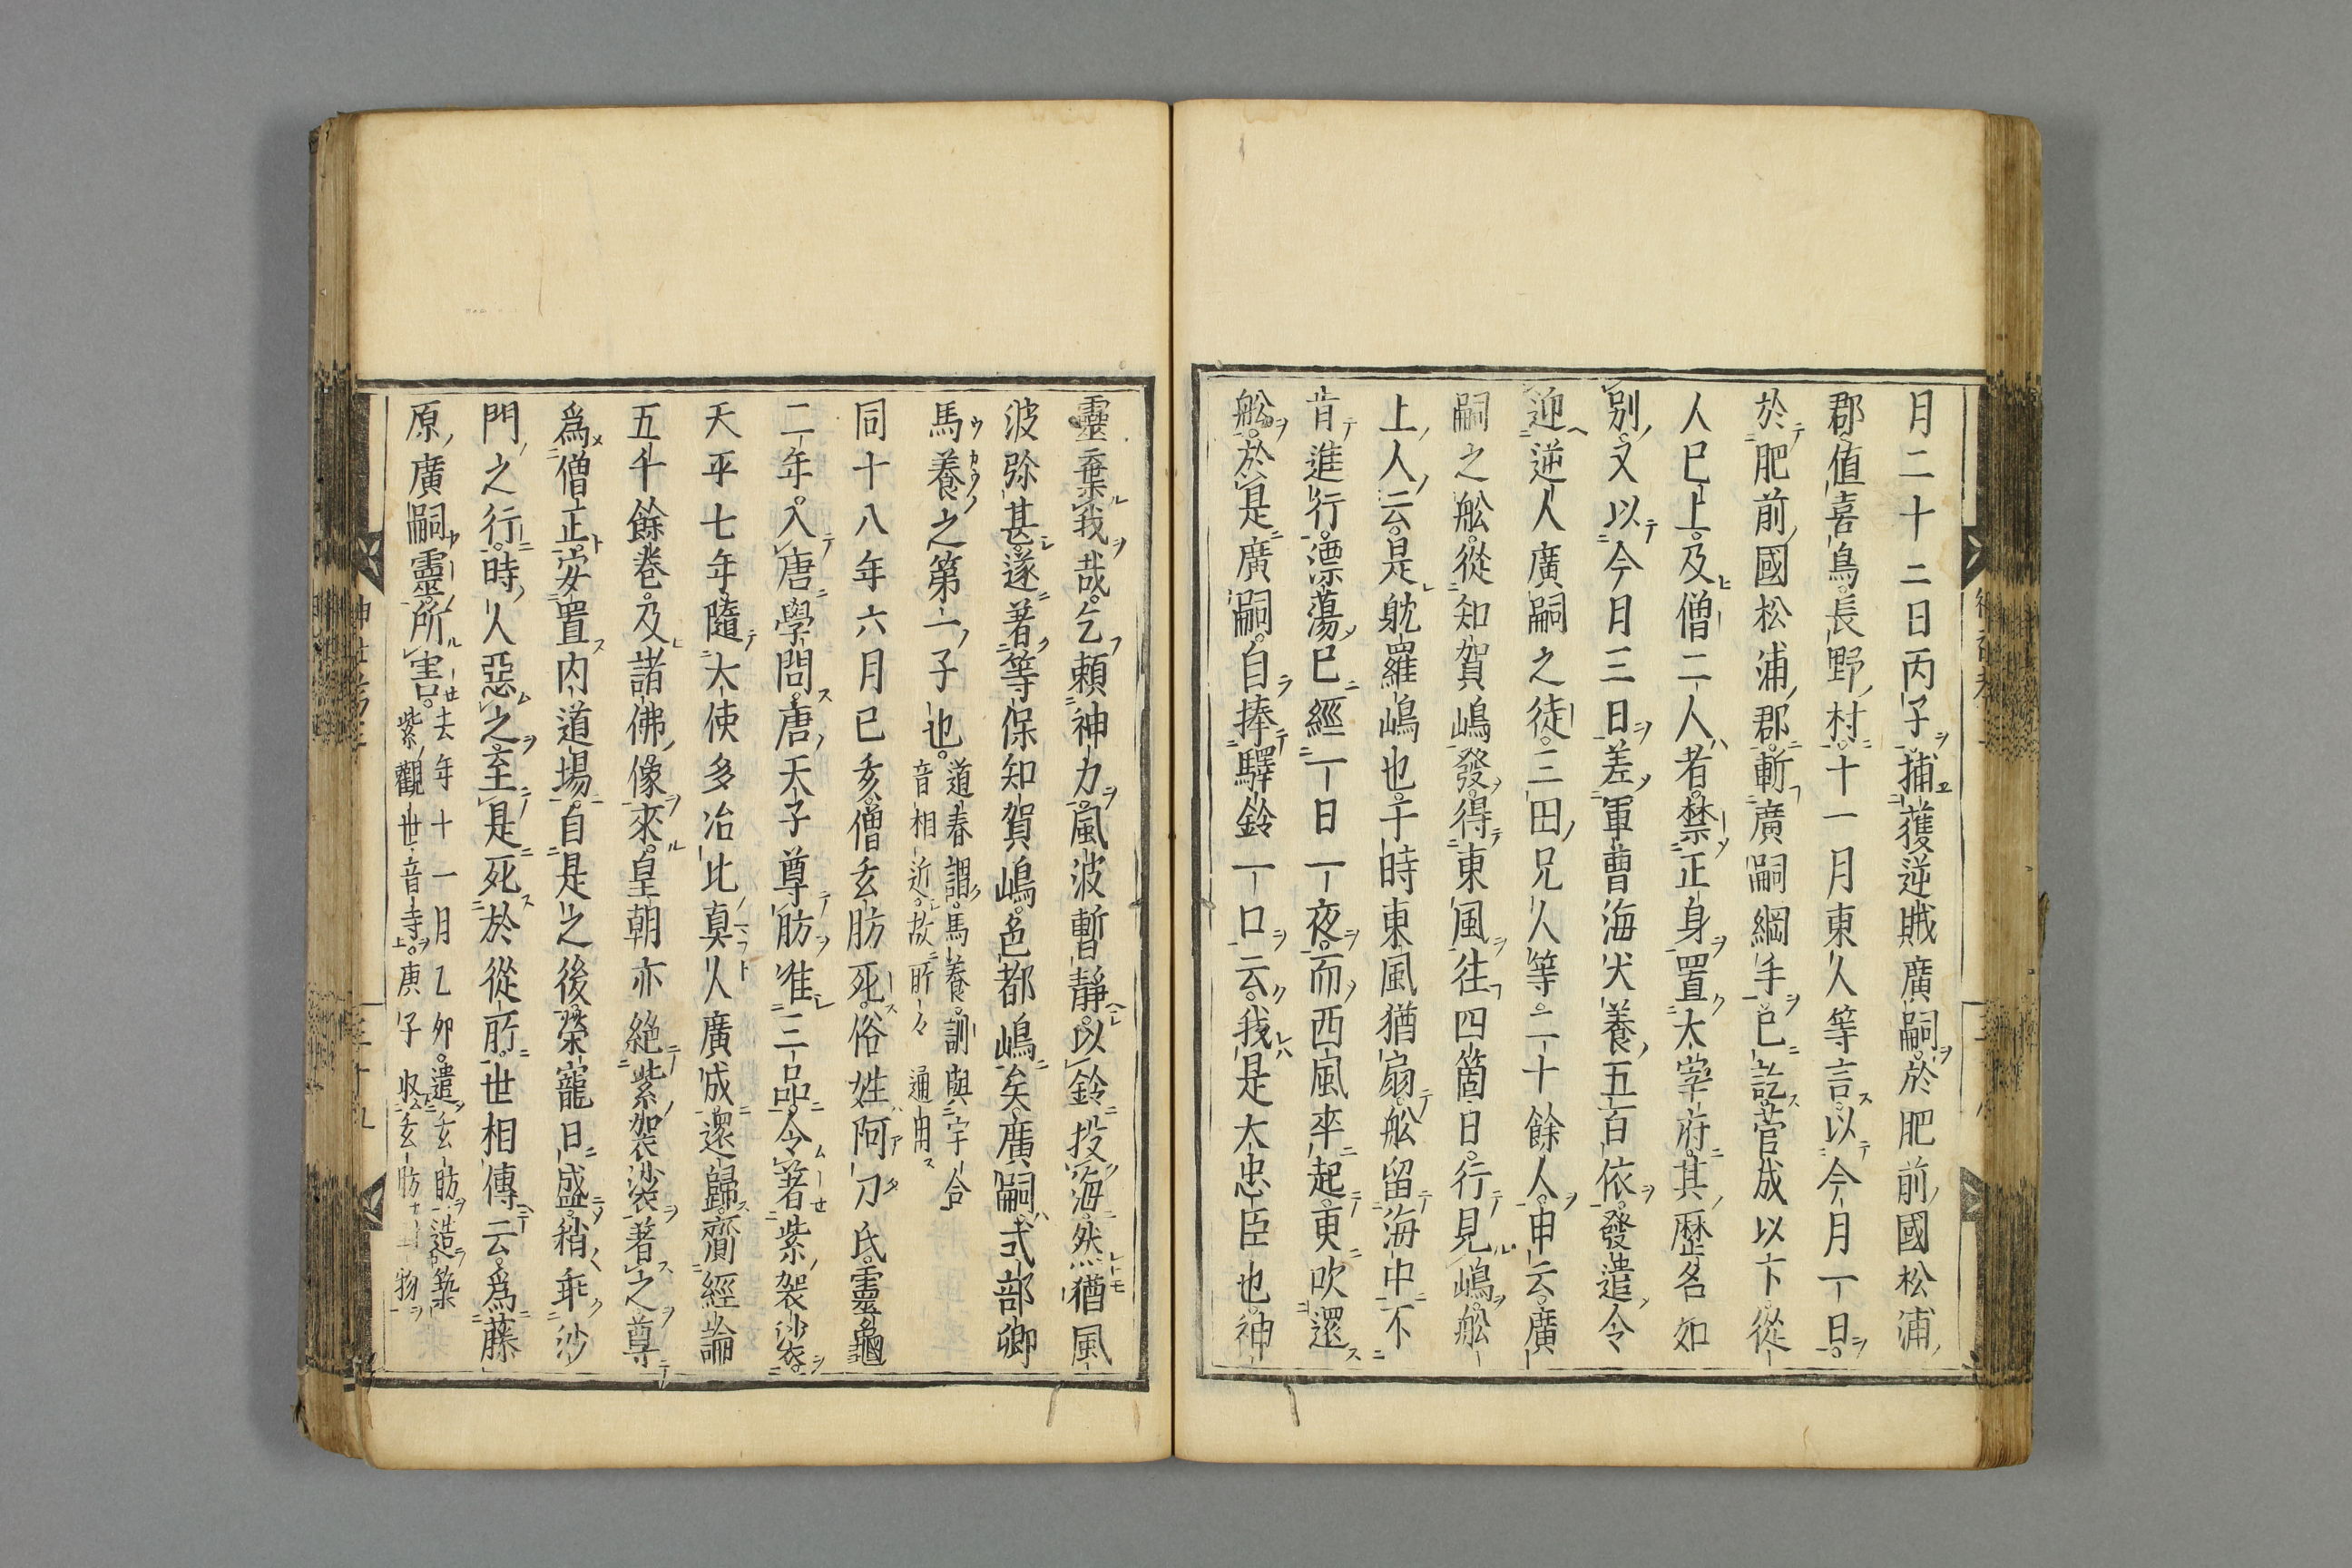 月二十二日丙子捕獲逆賊廣嗣於肥前國松浦
郡値喜鳥長野村十一月東人等言以今月一日
於肥前國松浦郡斬廣嗣綱手已訖菅成以下從
人已上及僧二人者禁正身置大宰府其歴名如
別又以今月三日差軍曹海犬養五百依發遣令
迎逆人廣嗣之徒三田兄人等二十餘人申云廣
嗣之舩從知賀嶋發得東風往四箇日行見嶋舩
上人云是躭羅嶋也于時東風猶扇舩留海中不
肯進行漂蕩已經一日一夜而西風卒起更吹還
舩於是廣嗣自捧驛鈴一口云我是大忠臣也神
靈棄我哉乞頼神力風波暫靜以鈴投海然猶風
波弥甚遂著等保知賀嶋色都嶋矣廣嗣式部卿
馬養之第一子也
道春謂馬養訓與宇合
音相近故所々通用
同十八年六月己亥僧玄肪死俗姓阿刀氏靈龜
二年入唐學問唐天子尊肪准三品令著紫袈裟
天平七年隨大使多治比真人廣成還歸齎經論
五千餘巻及諸佛像來皇朝亦絶紫袈裟著之尊
爲僧正安置内道場自是之後榮寵日盛稍乖沙
門之行時人惡之至是死於從所世相傳云爲藤
原廣嗣靈所害
去年十一月乙卯遣玄肪造築
紫觀世音寺庚子収玄肪物